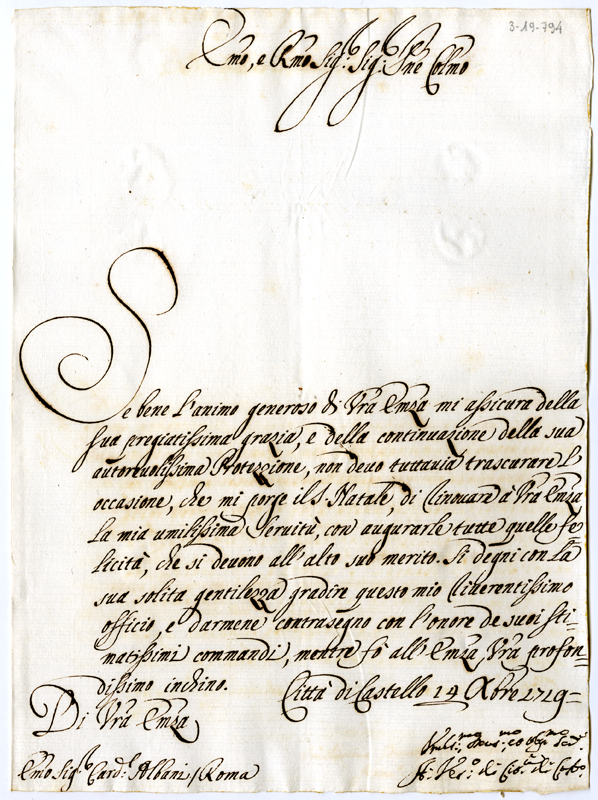 3-19-794
Emo, e Rmo Sig.r Sig.r Pne Colmo
Se bene l'animo generoso di Vra Emza mi assicura della
sua pregiatissima grazia, e della continuazione della sua
autoreuolissima Protezzione, non deuo tuttauia trascurare l'
occasione, che mi porge il S. Natale, di rinouare à Vra Emza
la mia umilissima Seruitù, con augurarle tutte quelle fe=
licità, che si deuono all'alto suo merito. Si degni con la
sua solita gentilezza gradire questo mio riuerentissimo
officio, e darmene contrasegno con l'onore de suoi sti=
matissimi commandi, mentre fò all'Emza Vra profon=
dissimo inchino. Città di Castello 14 Xbre 1719=
Di Vra Emza
Emo Sig.r Card.l Albani / Roma